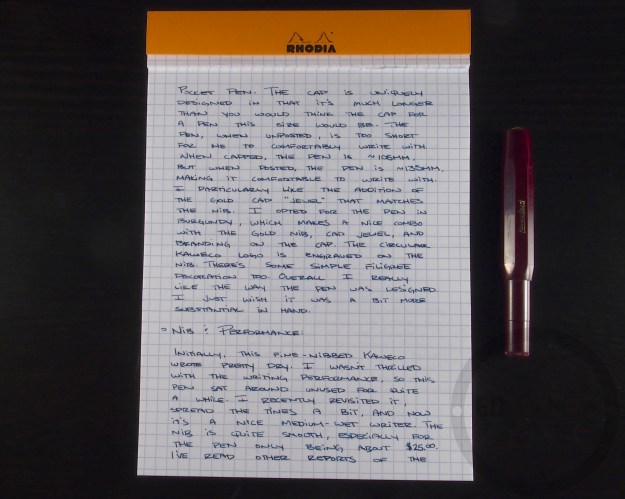 RHODIA
POCKET PEN. THE CAP IS UNIQUELY
DESIGNED IN THAT IT'S MUCH LONGER
THAN YOU WOULD THINK THE CAP FOR
A PEN THIS SIZE WOULD BE. THE
PEN, WHEN UNPOSTED, IS TOO SHORT
FOR ME TO COMFORTABLY WRITE WITH.
WHEN CAPPED, THE PEN IS ~105MM.
BUT WHEN POSTED, THE PEN IS ~135MM.
MAKING IT COMFORTABLE TO WRITE WITH.
I PARTICULARLY LIKE THE ADDITION OF
THE GOLD CAP "JEWEL" THAT MATCHES
THE NIB. I OPTED FOR THE PEN IN
BURGUNDY, WHICH MAKES A NICE COMBO
WITH THE GOLD NIB, CAP JEWEL, AND
BRANDING ON THE CAP. THE CIRCULAR
KAWECO LOGO IS ENGRAVED ON THE
NIB. THERE'S SOME SIMPLE FILIGREE
DECORATION TOO. OVERALL I REALLY
LIKE THE WAY THE PEN WAS DESIGNED.
I JUST WISH IT WAS A BIT MORE
SUBSTANTIAL IN HAND.
NIB & PERFORMANCE:
INITIALLY, THIS FINE-NIBBED KAWECO
WROTE PRETTY DRY. I WASN'T THRILLED
WITH THE WRITING PERFORMANCE, SO THIS
PEN SAT AROUND UNUSED FOR QUITE
A WHILE. I RECENTLY REVISITED IT,
SPREAD THE TINES A BIT, AND NOW
IT'S A NICE MEDIUM-WET WRITER. THE
NIB IS QUITE SMOOTH, ESPECIALLY FOR
THE PEN ONLY BEING ABOUT $25.00.
I'VE READ OTHER REPORTS OF THE